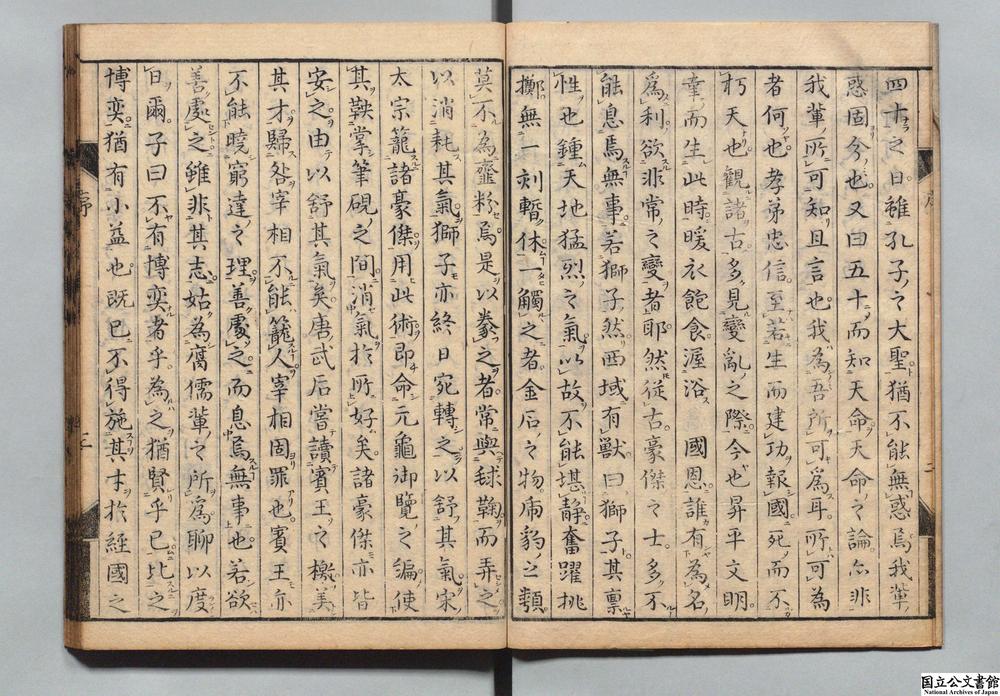 四十之日雖孔子之大聖猶不能無惑焉我輩
惑固今也又曰五十而知天命天命之論亦非
我輩所可知且言也我為吾所可為耳所可為
者何也孝弟忠信至若生而建功報國死而不
朽天也觀諸古多見變亂之際今也昇平文明
章而生此時暖衣飽食渥浴 國恩誰有為名
為利欲非常之變者耶然從古豪傑之士多不
能息焉無事若獅子然西域有獸曰獅子其稟
性也鍾天地猛烈之氣以故不能堪靜奮躍挑
擲無一刻暫休一觸之者金石之物虎豹之類
莫不為齏粉焉是以豢之者常與毬鞠而弄之
以消耗其氣獅子亦終日宛轉之以舒其氣宋
太宗籠諸豪傑用此術即命元龜御覽之編使
其鞅掌筆硯之間消氣於所好矣諸豪傑亦皆
安之由以舒其氣矣唐武后嘗讀賓王之檄美
其才歸咎宰相不能籠人宰相固罪也賓王亦
不能曉窮達之理善處之而息焉無事也若欲
善處之雖非其志姑為腐儒輩之所為聊以度
日爾子曰不有博奕者乎為之猶賢乎已比之
博奕猶有小益也既已不得施其才於經國之
序
二
序
三
国立公文書館
National Archives of Japan